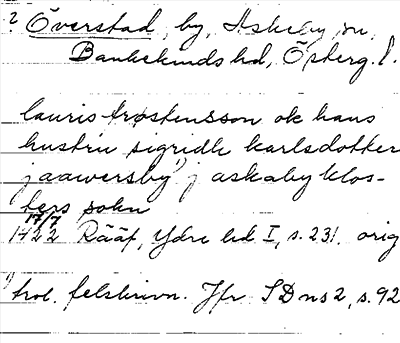 ? Överstad, by, Askeby sn,
Bankekinds hd, Österg. l.
lauris trøstensson ok hans
hustru sigridh karlsdotter
j aawersby j askaby klos-
ters sokn
17/7
1422 Rääf, Ydre hd I, s. 231. orig
trol. felskrivn. Jfr SDns2, s. 92